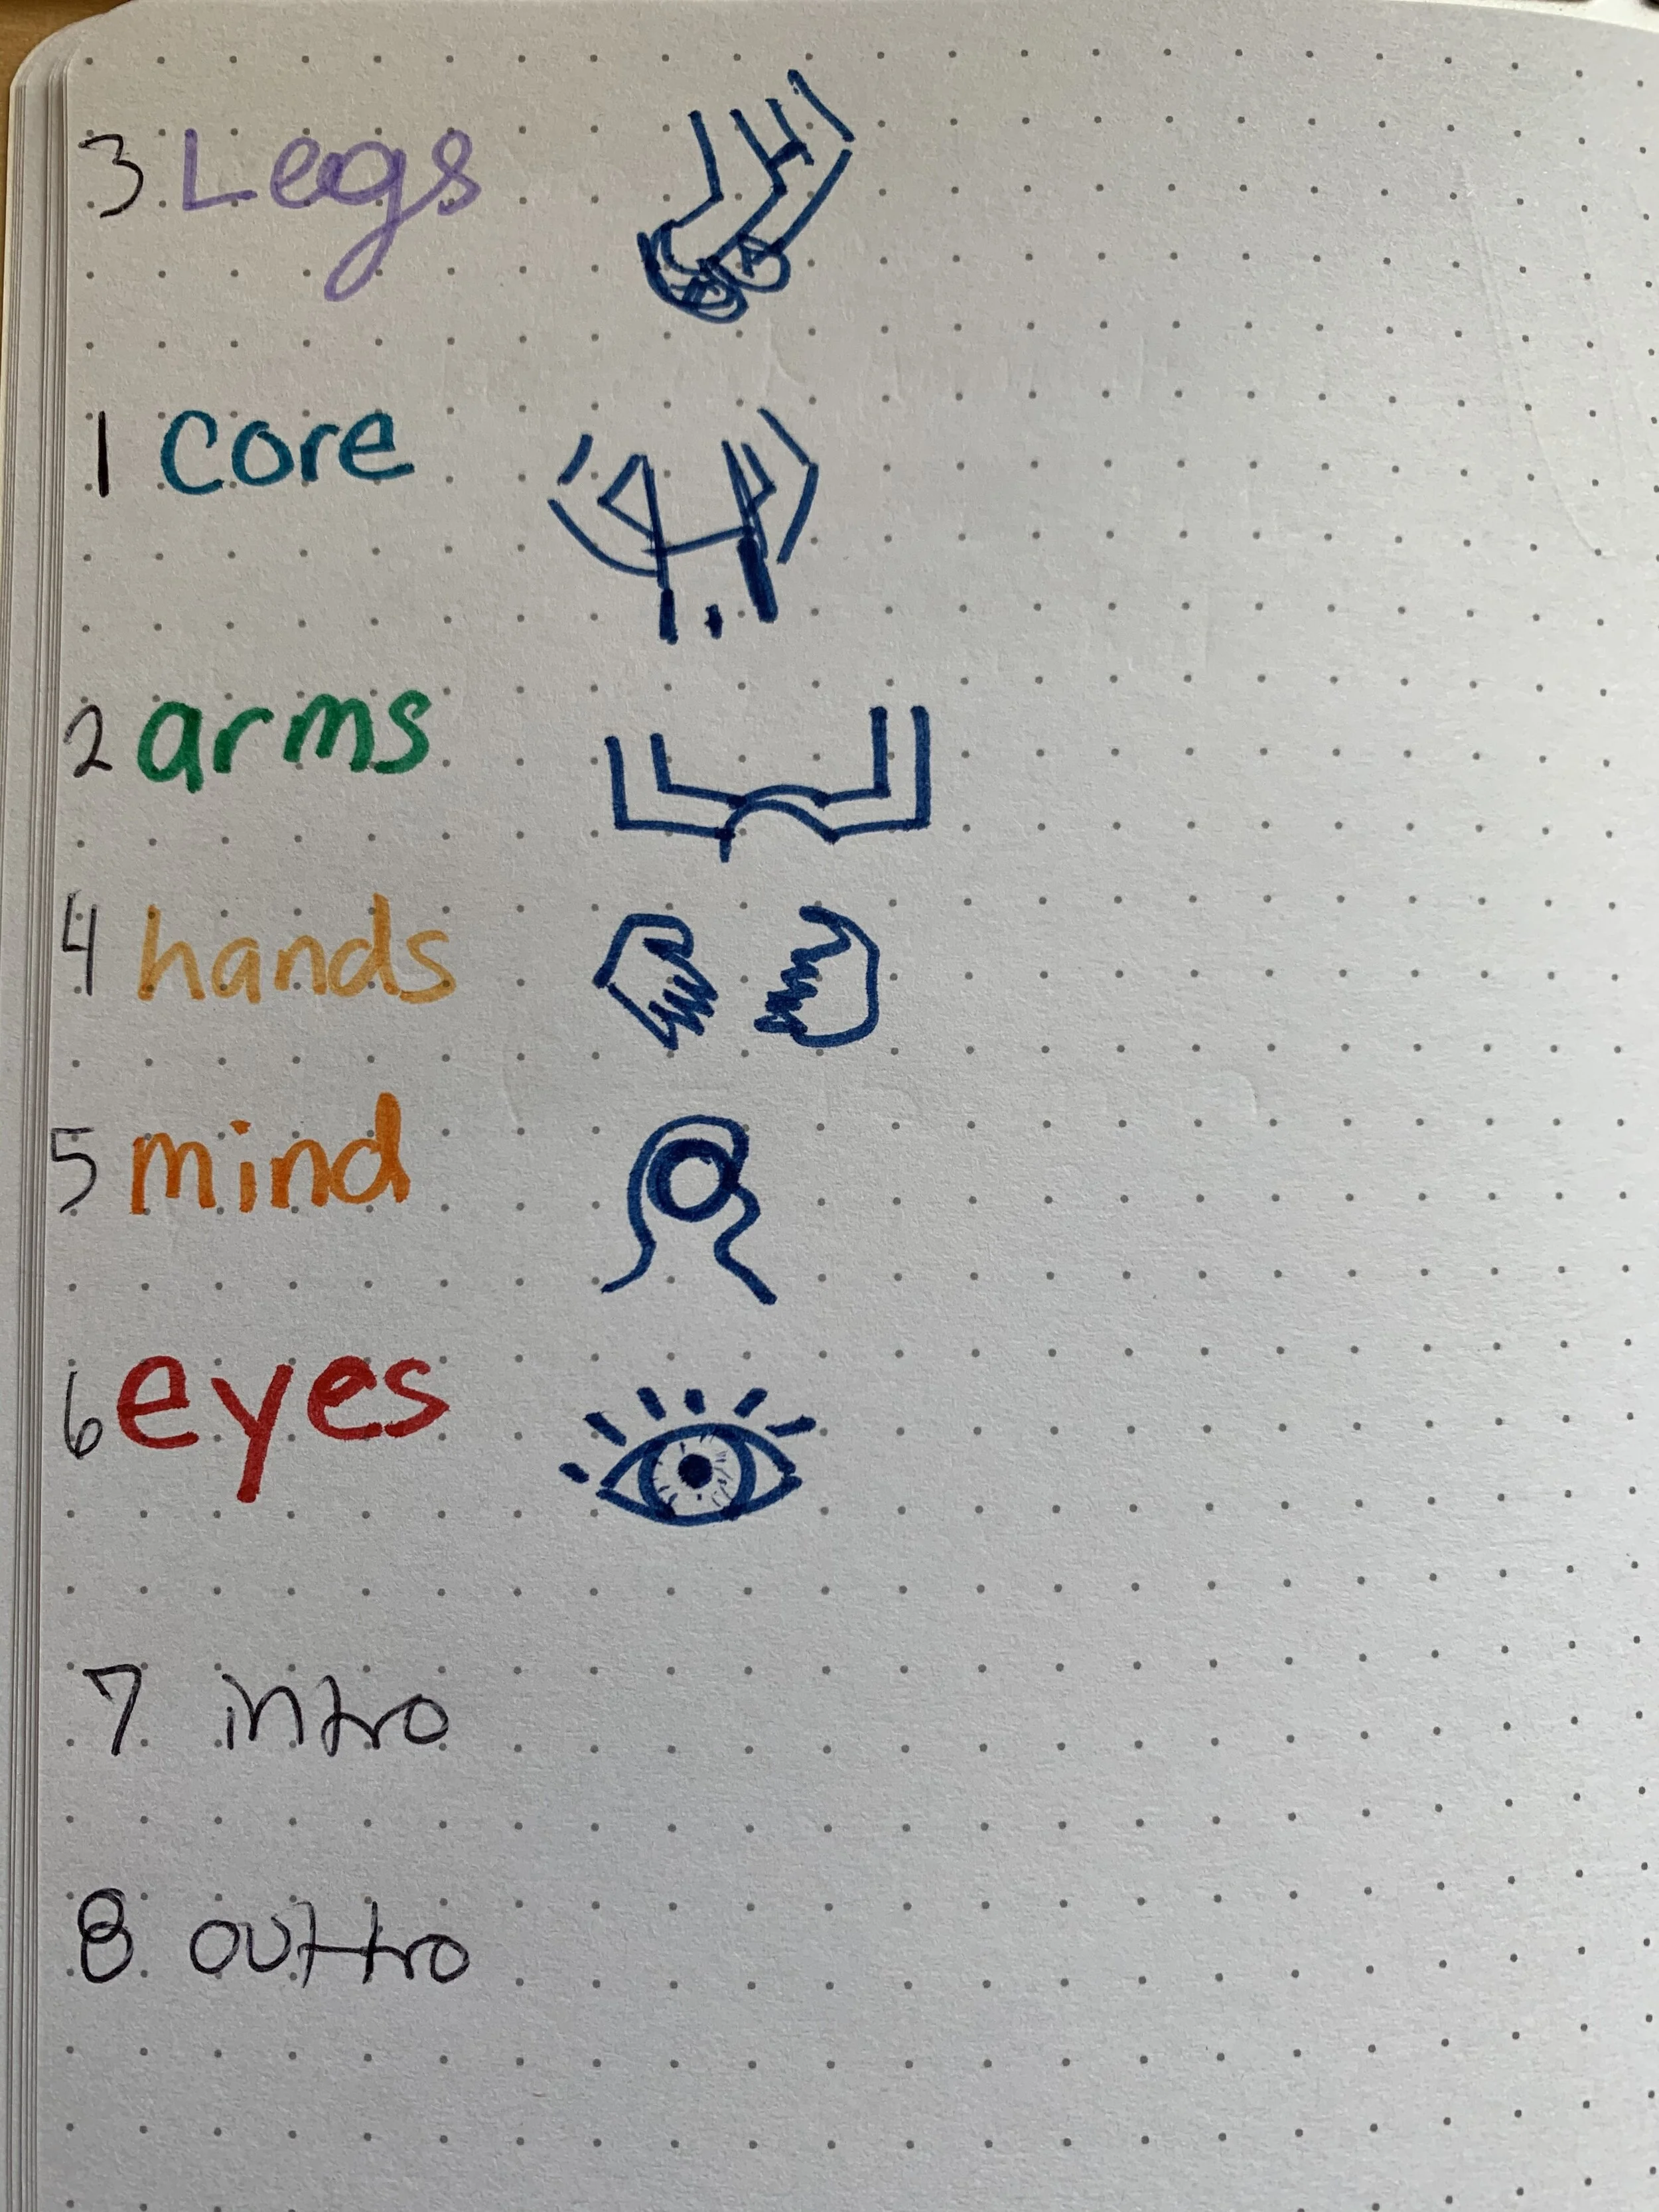 3 Legs
1 core
2 arms
4 hands
5 mind
6 eyes
7 intro
8 outtro